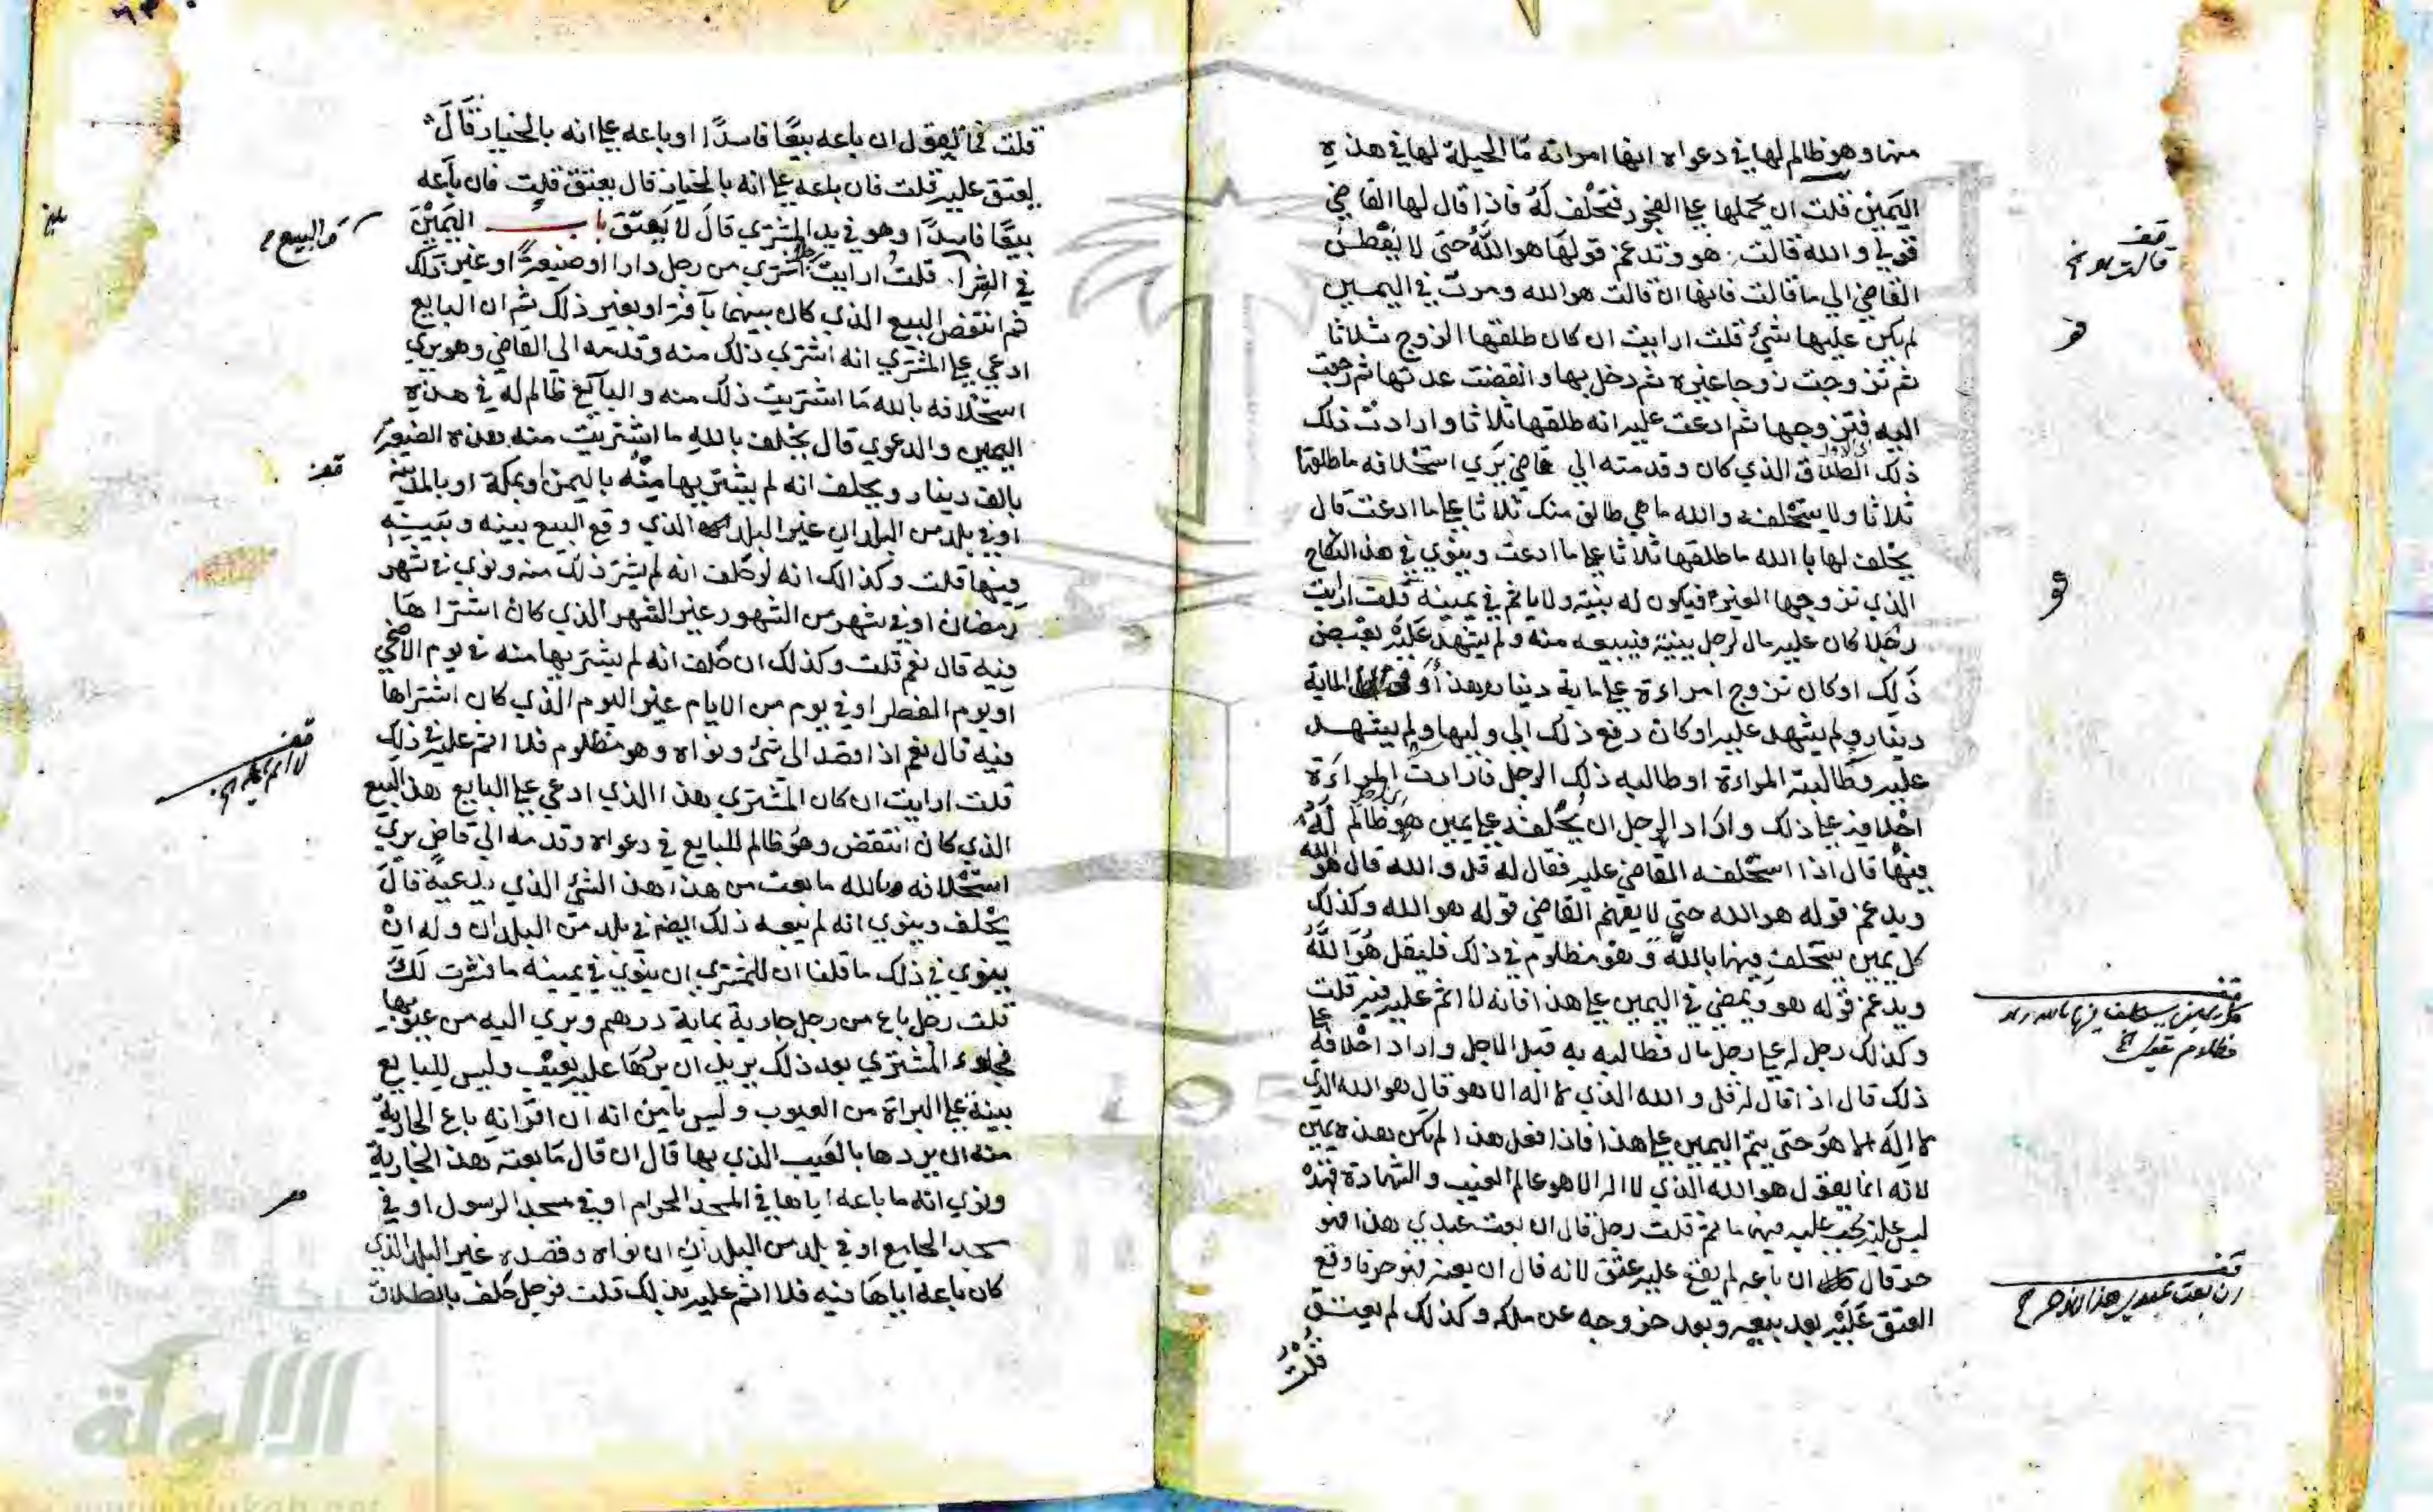 منها وهو ظالم لها في دعواه انها امراته ما الحيلة لها في هذه
اليمين قلت ان يحملها على الفجور فتحلف له فاذا قال لها القاضي
قولي والله قالت هو وتدغم قولها هو الله حتى لا يفطن
القاضي الى ما قالت فانها ان قالت هو الله ومرت في اليمين
لم يكن عليها شئ قلت ارايت ان كان طلقها الزوج ثلاثا
ثم تزوجت زوجا غيره ثم دخل بها وانقضت عدتها ثم رجعت
اليه فتزوجها ثم ادعت عليه انه طلقها ثلاثا وارادت ذلك
ذلك الطلاق الاول الذي كان وقدمته الي قاضي يري استحلافه ما طلقها
ثلاثا ولا يستحلفه والله ما هي طالق منك ثلاثا على ما ادعت قال
يحلف لها باالله ما طلقها ثلاثا على ما ادعت وينوي في هذا النكاح
الذي تزوجها فيكون له نيته ولا ياثم في يمينه قلت ارايت
رجلا كان عليه مال لرجل ببينة فيبيعه منه ولم يشهد عليه بقبض
ذلك او كان تزوج امراءة على ماية دينار الماية
دينار ولم يشهد عليه او كان دفع ذلك الي وليها ولم يشهد
عليه وطالبته المراءة او طالبه ذلك الرجل فارادت المراءة
احلافه على ذلك واراد الرجل ان يحلفه على يمين هو ظالم له
فيها قال اذا استحلفه القاضي عليه فقال له قل والله قال هو الله
ويدغم قوله هو الله حتي لا يفهم القاضي قوله هو الله وكذلك
كل يمين يستحلف فيها بالله وهو مظلوم في ذلك فليقل هو الله
ويدغم قوله هو ويمضي في اليمين على هذا فانه لا اثم عليه فيه قلت
وكذلك رجل له على رجل مال فطالبه به قبل الاجل واراد احلافه على
ذلك قال اذا قال له قل والله الذي لا اله الا هو قال هو الله الذي
لا اله الا هو حتى يتم اليمين على هذا فاذا فعل هذا لم يكن هذه يمين
لانه انما يقول هو الله الذي لا اله الا هو عالم الغيب والشهادة فهذه
ليس عليه فيها ماثم قلت رجل قال ان بعت عبدي هذا فهو
حر قال ان باعه لم يقع عليه عتق لانه قال ان بعته فهو حر فاوقع
العتق عليه بعد بيعه وبعد خروجه عن ملكه وكذلك لم يعتق
قلت
قف
قف
كل يمين يستحلف فيها بالله وهو
مظلوم
قف
ان بعت عبدي هذا فهو حر
قلت فما يقول ان باعه بيعا فاسدا او باعه على انه بالخيار قال
يعتق عليه قلت فان باعه على انه بالخيار قال يعتق قلت فان باعه
بيعا فاسدا وهو في يد المشتري قال لا يعتق باب اليمين
في الشرا قلت ارايت رجلا اشتري من رجل دارا او ضيعة او غير ذلك
ثم انتقض البيع الذي كان بينهما بآفة او بغير ذلك ثم ان البايع
ادعي على المشتري انه اشتري ذلك منه وقدمه الي القاضي وهو يري
استحلافه بالله ما اشتريت ذلك منه والبايع ظالم له في هذه
اليمين والدعوي قال يحلف بالله ما اشتريت منه هذه الضيعة
بالف دينار ويحلف انه لم يشتريها منه باليمن او بمكة او بالمدينة
او في بلد من البلدان غير البلد الذي وقع البيع بينه وبينه
فيها قلت وكذالك انه لو حلف انه لم يشتر ذلك منه ونوي في شهر
رمضان او في شهر من الشهور غير الشهر الذي كان اشتراها
فيه قال نعم قلت وكذلك ان حلف انه لم يشتريها منه في يوم الاضحي
او يوم الفطر او في يوم من الايام غير اليوم الذي كان اشتراها
فيه قال نعم اذا قصد الى شئ ونواه وهو مظلوم فلا اثم عليه في ذلك
قلت ارايت ان كان المشتري هذا الذي ادعي على البايع هذا البيع
الذي كان انتقض وهو ظالم للبايع في دعواه وقدمه الي قاضي يري
استحلافه بالله ما بعت من هذا هذا الشئ الذي يدعيه قال
يحلف وينوي انه لم يبعه ذلك في بلد من البلدان وله ان
ينوي في ذلك ما قلنا ان للمشتري ان ينوي في يمينه ما فسرت لك
قلت رجل باع من رجل جارية بماية درهم وبري اليه من عيوبها
فجاء المشتري بعد ذلك يريد ان يردها عليه بعيب وليس للبايع
بينة على البراة من العيوب وليس يامن انه ان اقر انه باع الجارية
منه ان يردها بالعيب الذي بها قال ان قال ما بعته هذه الجارية
ونوي انه ما باعه اياها في المسجد الحرام او في مسجد الرسول او في
مسجد الجامع او في بلد من البلدان ان نواه وقصده غير البلد الذي
كان باعه اياها فيه فلا اثم عليه بذلك قلت فرجل حلف بالطلاق
قف
قف
لا اثم عليه
الألوكة